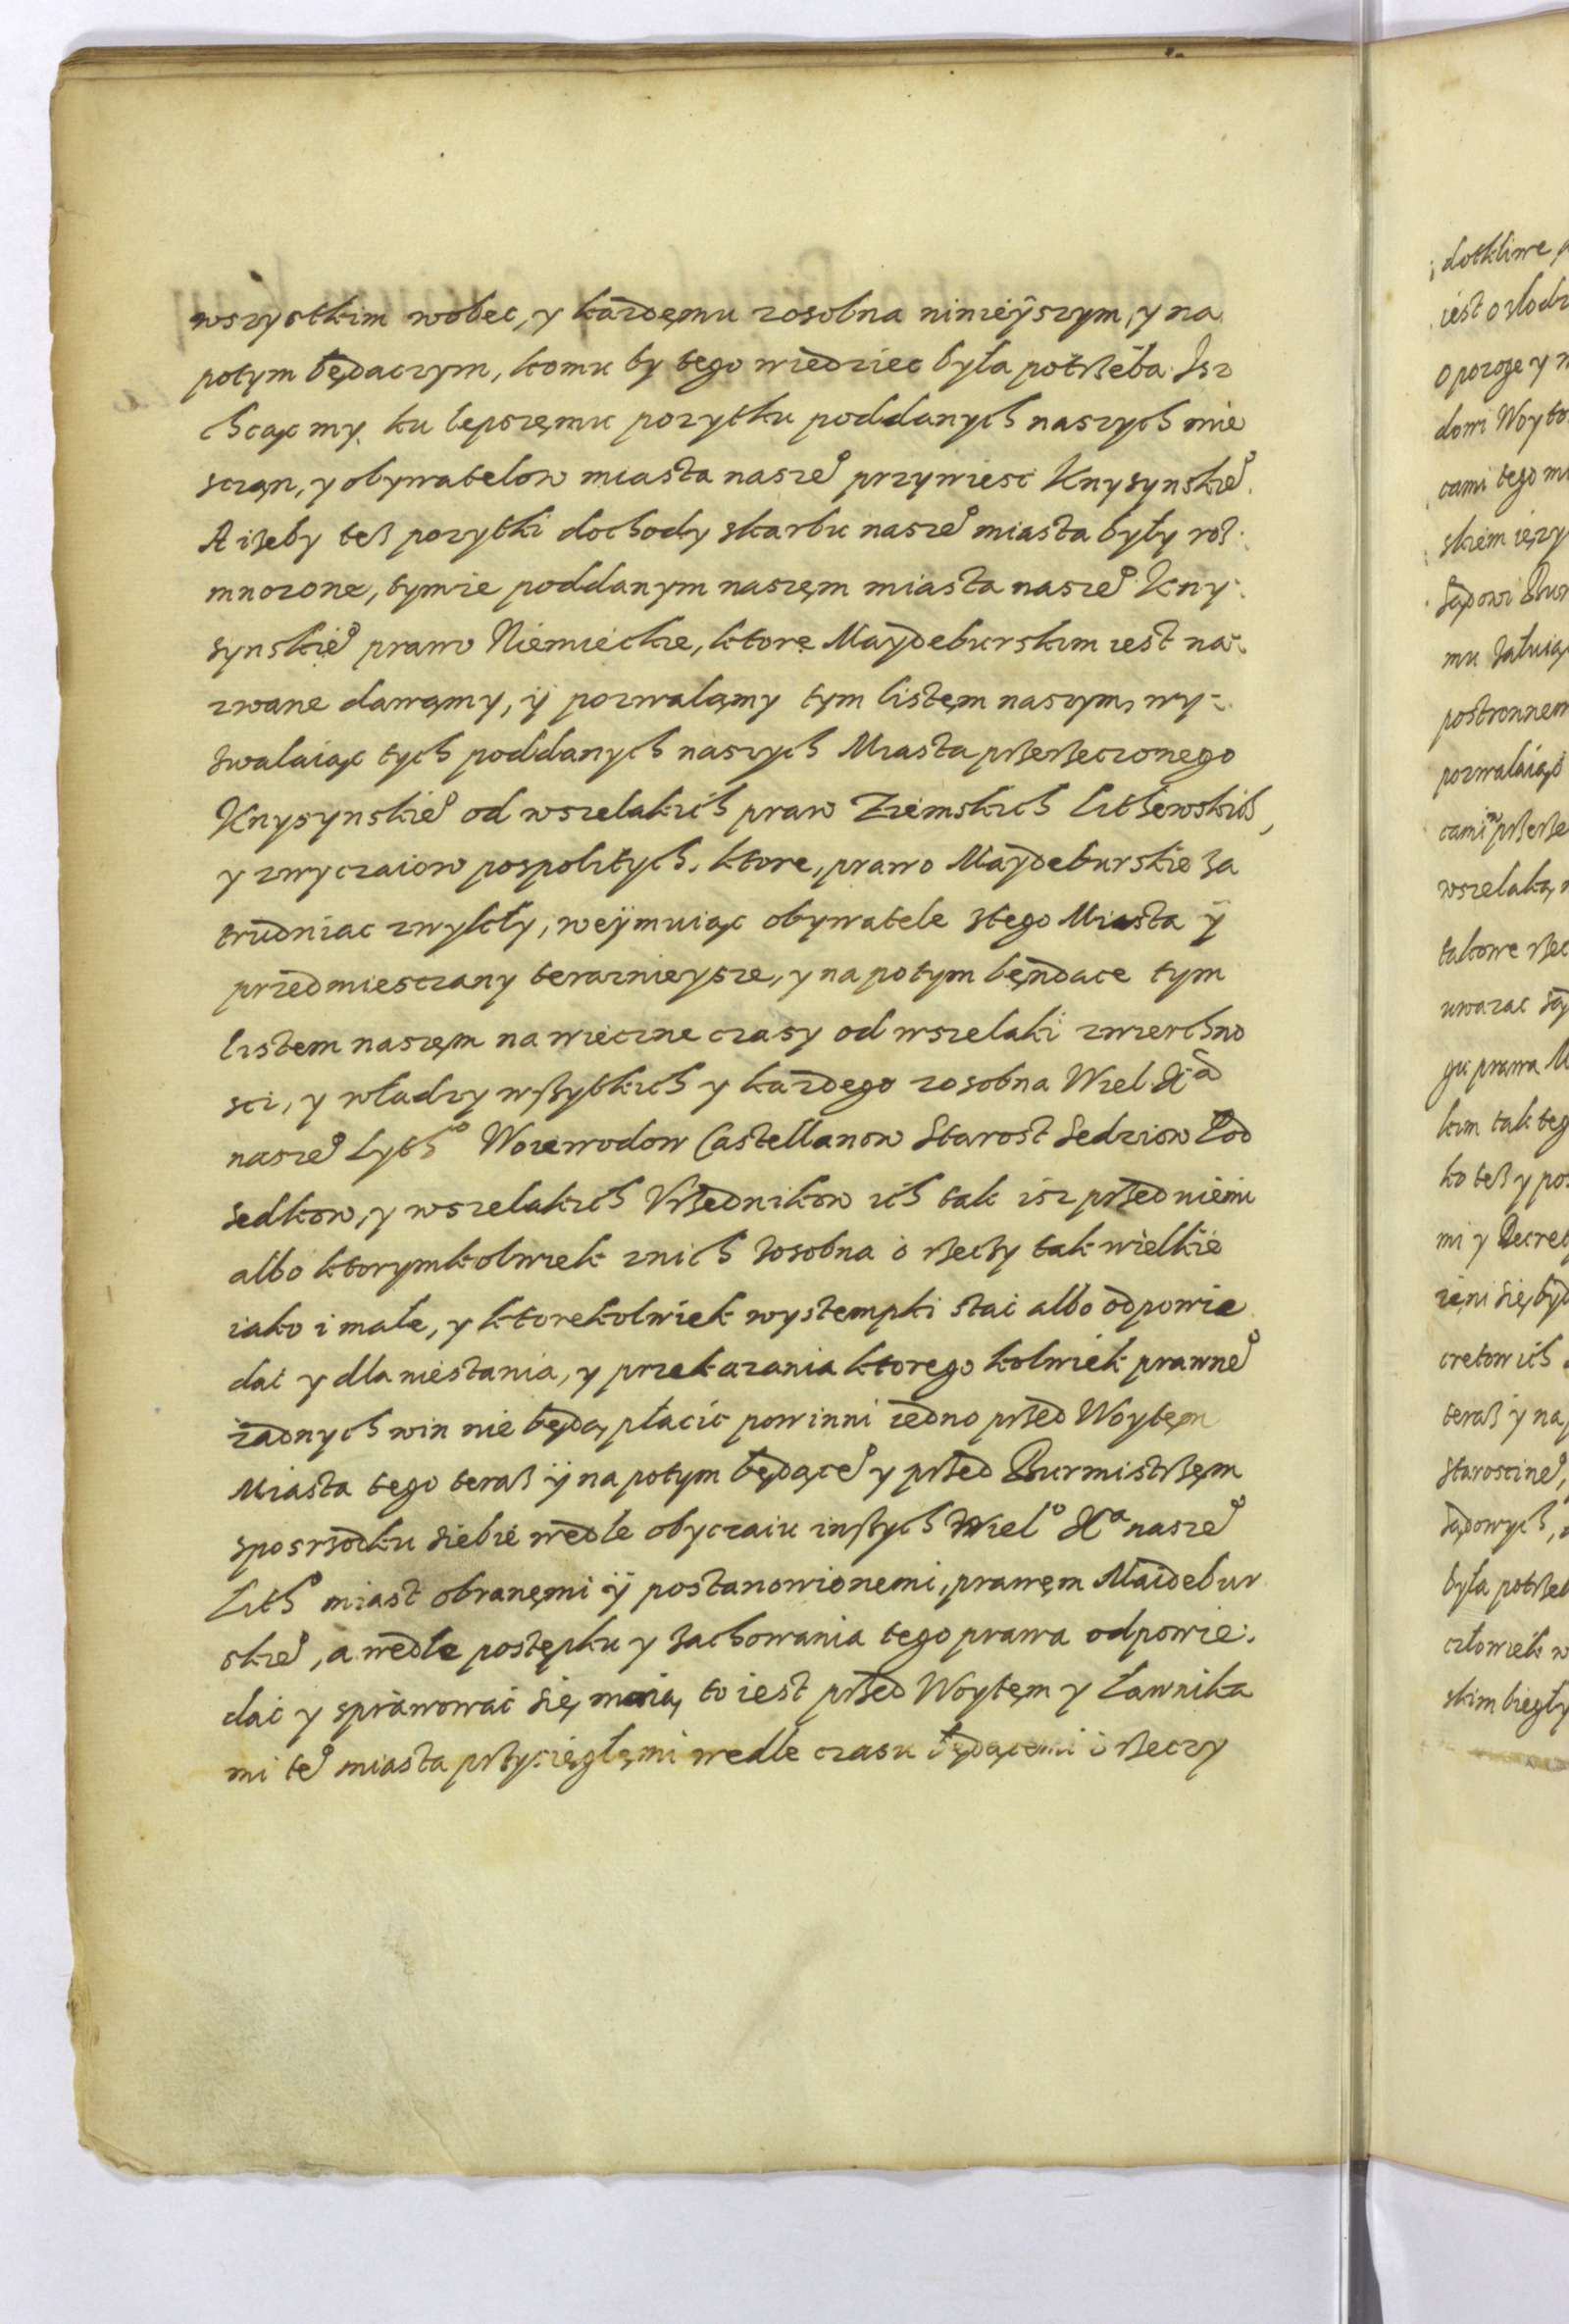 wszystkim wobec, y każdęmu zosobna ninieÿszym, y na
potym będaczym, komu by tego wiedziec była potrßeba Isz
chcąc my ku lepszęmu pozytku poddanych naszych mie
sczan, y obywatelow miasta nasze⁰ przywiesc Knysynskie⁰.
A ißeby teß pozytki dochody skarbu nasze⁰ miasta były roz:
mnozone, tymze poddanym naszęm miasta nasze⁰ Kny:
synskie⁰ prawo Niemieckie, ktorę Maÿdeburskim iest na:
zwane dawąmy, ÿ pozwaląmy tym listęm naszym, wy=
zwalaiąc tych poddanych naszych Miasta prßerßeczonego
Knysynskie⁰ od wszelakich praw Ziemskich Lithewskich,
y zwyczaiow pospolitych, ktore, prawo Maÿdeburskie za
trudniac zwykły, weÿmuiąc obywatele ztego Miasta ÿ
przedmiesczany teraznieysze, y na potym bęndace tym
listem naszęm na wieczne czasy od wszelaki zwierchno
sci, y władzy wßytkich y kazdego zosobna Wiel X a
nasze⁰ Lyth⁰ Woiewodow Castellanow Starost Sedziow Pod
sedkow, y wszelakich Vrßednikow ich tak isz prßed niemi
albo ktorymkolwiek znich zosobna o rßeczy tak wielkie
iako i małe, y ktorekolwiek wystempki stac albo odpowie
dac y dla niestania, y przekazania ktorego kolwiek prawne⁰
żadnych win nie będą płacic powinni iedno prßed Woytęm
Miasta tego teraß ÿ na potym będące⁰ y prßed Burmistrßęm
sposrzodku siebie wedle obyczaiu inßych Wiel⁰ Xª nasze⁰
Lith⁰ miast obranęmi ÿ postanowionemi, prawęm Maidebur
skie⁰, a wedle postępku y zachowania tego prawa odpowie:
dac y sprawowac się maią, to iest prßed Woytęm y Ławnika
mi te⁰ miasta prßysięgłęmi wedle czasu będącemi o rßeczy
dotkliwe
iest o złodz
o pozoge y
dowi Woyto
cami tego mi
skiem ięzy
Sądowi Bur
mu żałuią
postronnem
pozwalaiąc
cami prßerße
wszelaką
takowe rßec
uwazac są
gu prawa M
kim tak teg
ko teß y pos
mi y Decret
ieni się, byd
cretow ich
teraß y na
Staroscine⁰,
Sądowych,
była potrßeb
człowiek w
skim biegły